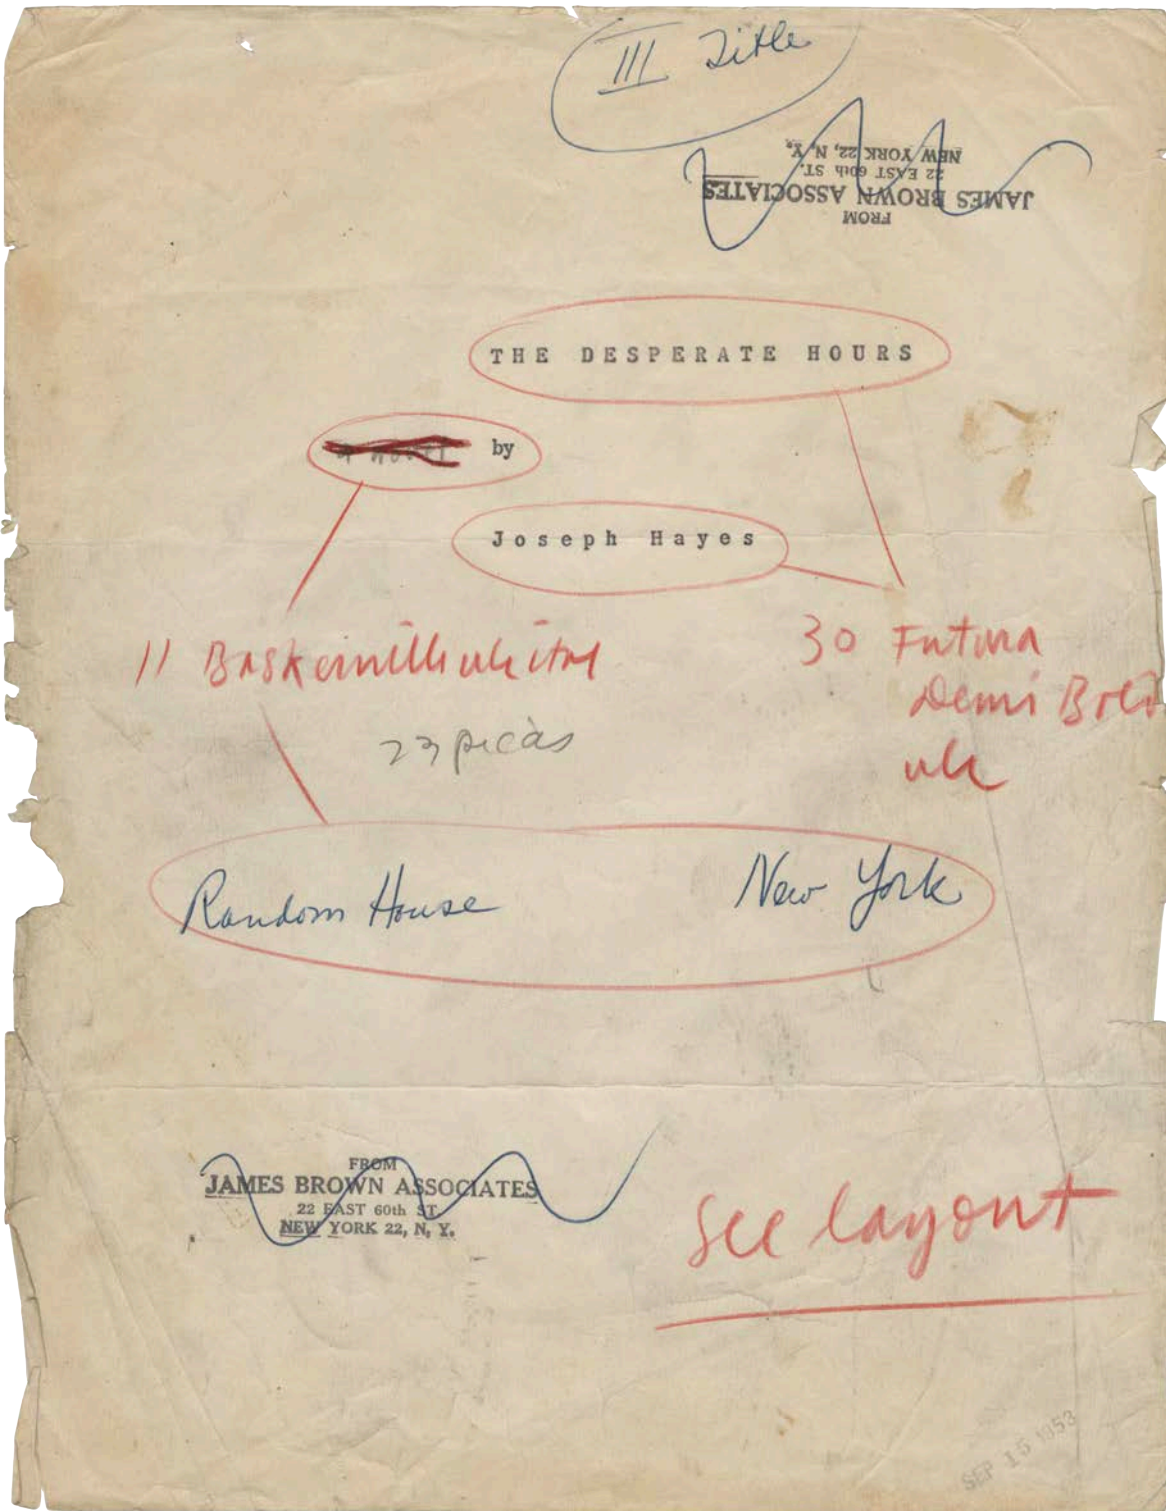 III Title
FROM
JAMES BROWN ASSOCIATES
22 EAST 60th ST.
NEW YORK 22, N. Y.
THE DESPERATE HOURS
a novel by
Joseph Hayes
11 Baskerville ulc ital
30 Futura
Demi Bold
ulc
23 picas
Random House New York
FROM
JAMES BROWN ASSOCIATES
22 EAST 60th ST.
NEW YORK 22, N. Y.
See layout
SEP 15 1953